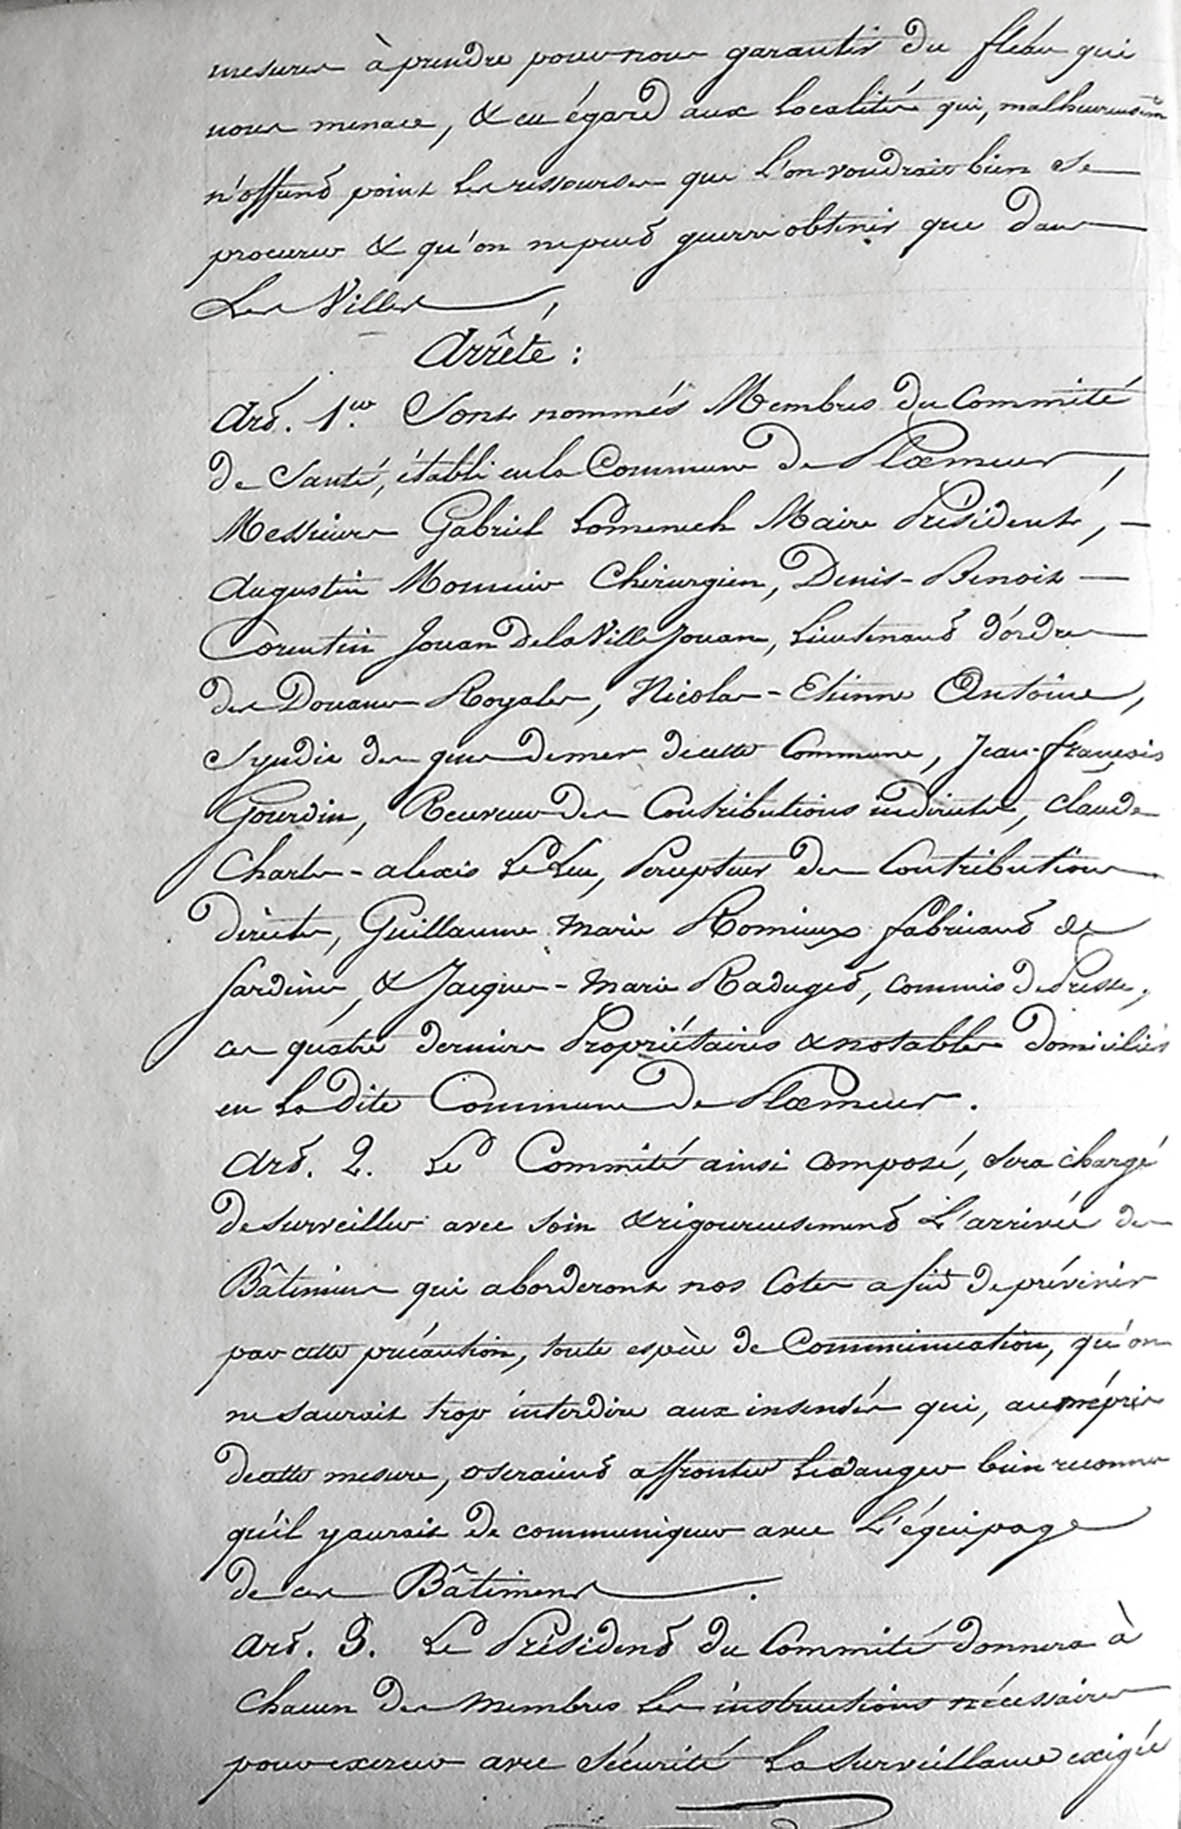 mesures à prendre pour nous garantir du fléau qui
nous menace, & eu égard aux Localités qui, malheureusem.
n'offrent point les ressources que l'on voudrait bien se
procurer & qu'on ne peut guerre obtenir que dans
Les Villes,
Arrête :
Art. 1.er Sont nommés Membres du Committé
de Santé, établi en la Commune de Plœmeur,
Messieurs Gabriel Lomenech Maire Président,
Augustin Monnier Chirurgien, Denis-Benoit
Corentin Jouan De la Ville Jouan, Lieutenant d'ordre
des Douanes Royales, Nicolas-Etienne Antoine,
Syndic des gens de mer de cette Commune, Jean-françois
Gourdin, Receveur des Contributions indirectes, Claude
Charles-alexis Le Leu, Percepteur des Contributions
directes, Guillaume Marie Romieux fabricant de
Sardines, & Jacques-Marie Raduget, commis de Presse,
ces quatre derniers Propriétaires & notables domiciliés
en la dite Commune de Plœmeur.
Art. 2. Le Committé ainsi composé, sera chargé
de surveiller avec soin & rigoureusement L'arrivée des
Bâtimens qui aborderont nos Cotes afin de prévenir
par cette précaution, toute espèce de Communication, qu'on
ne saurait trop interdire aux insensés qui, au mépris
de cette mesure, oseraient affronter le danger bien reconnu
qu'il y aurait de communiquer avec L'équipage
de ces Bâtimens.
Art. 3. Le Président du Committé donnera à
chacun des Membres les instructions nécessaires
pour exercer avec sécurité la surveillance exigée